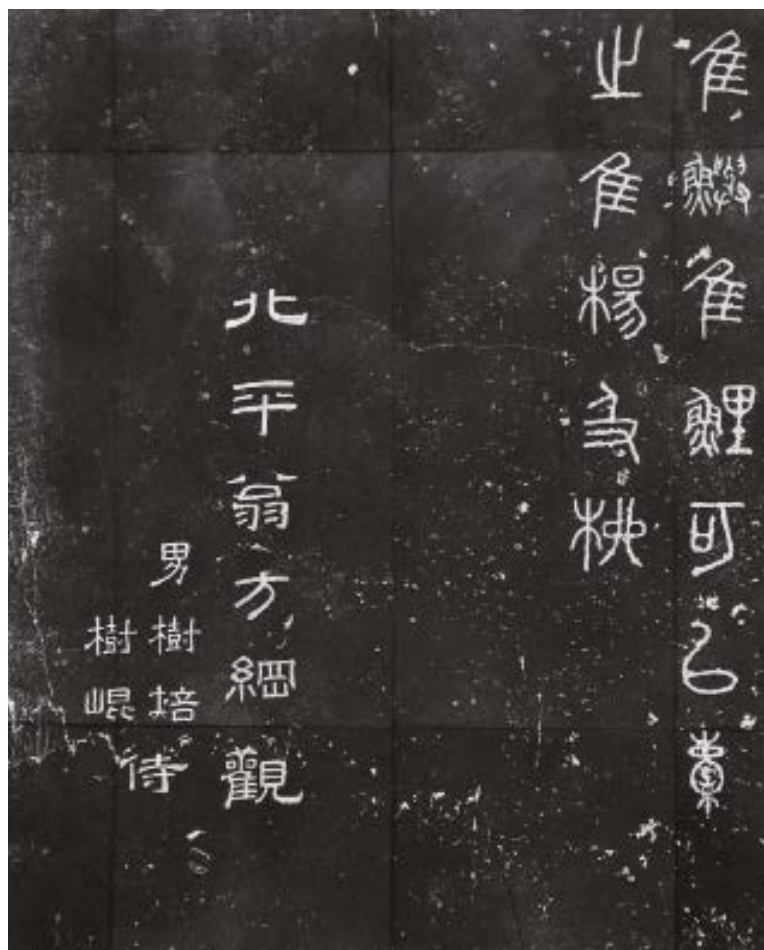 隹鱮隹鯉可㠯橐
之隹楊及柳
北平翁方綱觀
男樹培
樹崐
侍